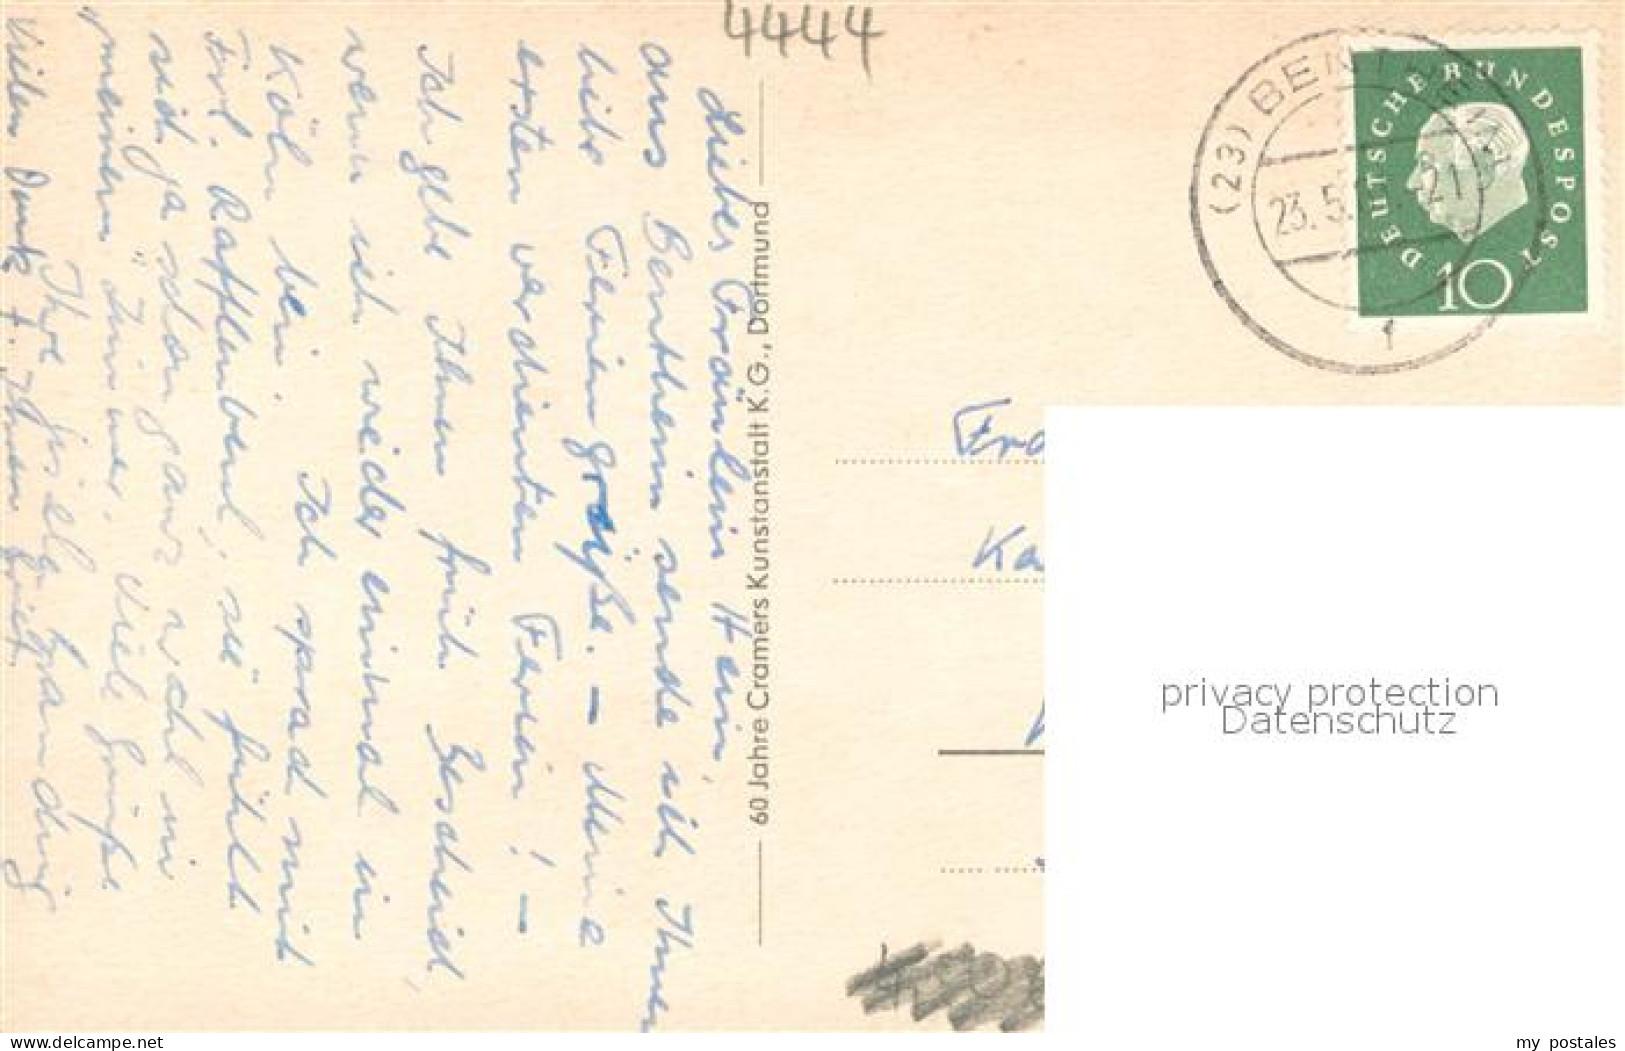 4444
Liebes Fräulein Hein,
aus Bentheim sende ich Ihnen
liebe Feriengrüße. – Meine
ersten verdienten Ferien! –
Ich gebe Ihnen früh Bescheid,
wenn ich wieder einmal in
Köln bin. Ich sprach mit
Frl. Rafflenbeul, sie fühlt
sich ja schon ganz wohl in
meinem Zimmer. Viele Grüße
Ihre Gisela
Vielen Dank f. Ihren Brief.
60 Jahre Cramers Kunstanstalt K.G., Dortmund
(23) BENTHEIM
23.5. 21
1
DEUTSCHE BUNDESPOST
10
Fra
Ka
privacy protection
Datenschutz
www.ansichtskartenversand.com
my_postales